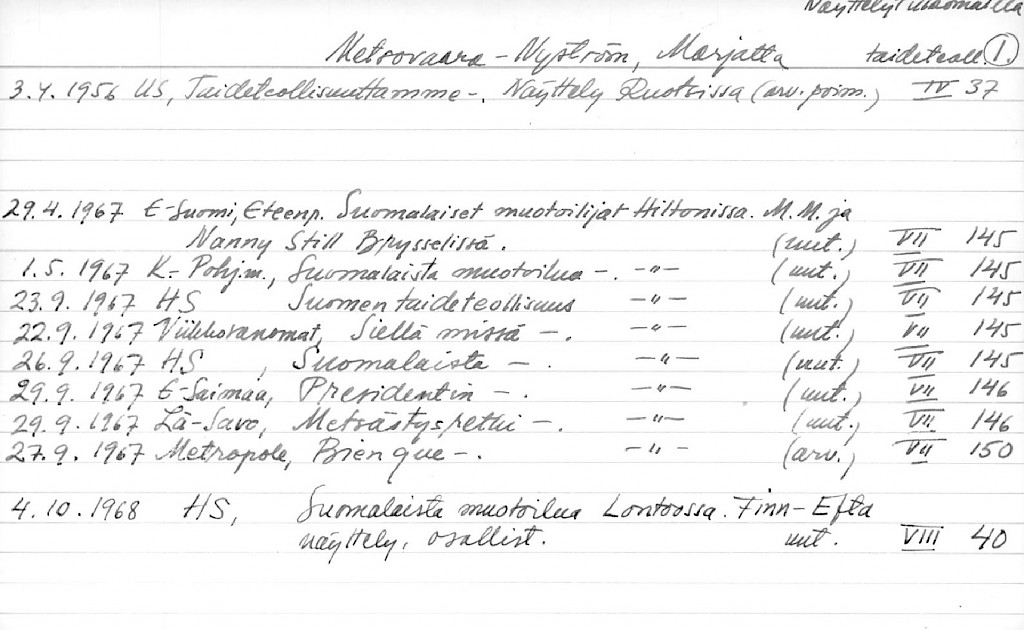 Näyttelyt ulkomailla
Metsovaara-Nyström, Marjatta taideteoll. 1.
3.4.1956 US, Taideteollisuuttamme -. Näyttely Ruotsissa (arv. poim.) IV 37
29.4.1967 E-Suomi, Eteenp. Suomalaiset muotoilijat Hiltonissa. M.M. ja
Nanny Still Brysselissä. (uut.) VII 145
1.5.1967 K.-Pohj.m., Suomalaista muotoilua -. -"- (uut.) VII 145
23.9.1967 HS Suomen taideteollisuus -"- (uut.) VII 145
22.9.1967 Viikkosanomat, Siellä missä -. -"- (uut.) VII 145
26.9.1967 HS, Suomalaista -. -"- (uut.) VII 145
29.9.1967 E-Saimaa, Presidentin -. -"- (uut.) VII 146
29.9.1967 Lä-Savo, Metsästysretki -. -"- (uut.) VII 146
27.9.1967 Metropole, Bien que -. -"- (arv.) VII 150
4.10.1968 HS, Suomalaista muotoilua Lontoossa. Finn-Efta
näyttely, osallist. uut. VIII 40